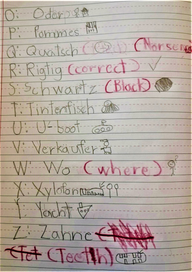 O: Oder
P: Pommes
Q: Quatsch (Nonsense)
R: Riqtig (correct)
S: Schwartz (Black)
T: Tintenfisch
U: U-boot
V: Verkäufer
W: Wo (where)
X: Xylofon
Y: Yacht
Z: Zähne
(Teeth)